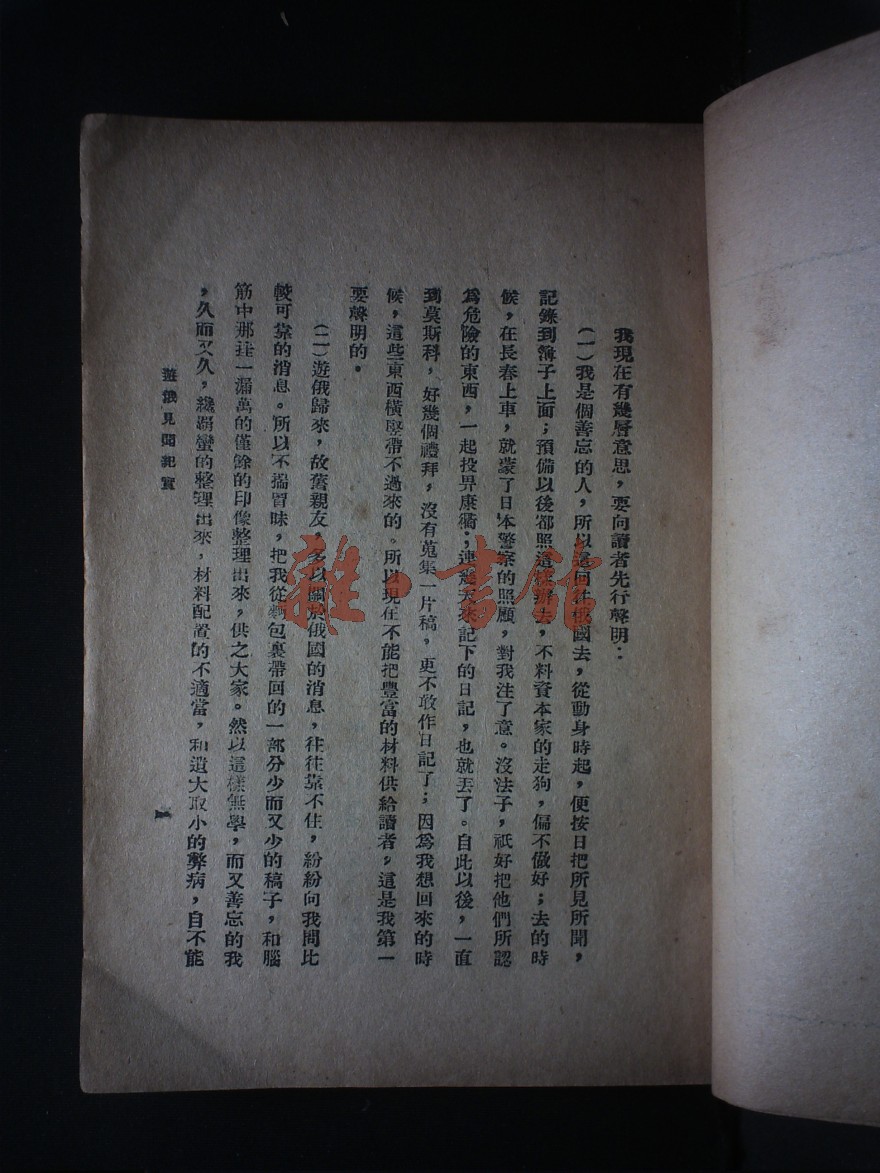 我現在有幾層意思，要向讀者先行聲明：
（一）我是個善忘的人，所以這回往俄國去，從動身時起，便按日把所見所聞，
記錄到簿子上面；預備以後都照這樣辦去，不料資本家的走狗，偏不做好；去的時
候，在長春上車，就蒙了日本警察的照顧，對我注了意。沒法子，祇好把他們所認
爲危險的東西，一起投畀康衢；連幾天來記下的日記，也就丟了。自此以後，一直
到莫斯科，好幾個禮拜，沒有蒐集一片稿，更不敢作日記了；因爲我想回來的時
候，這些東西橫豎帶不過來的。所以現在不能把豐富的材料供給讀者，這是我第一
要聲明的。
（二）遊俄歸來，故舊親友，多以關於俄國的消息，往往靠不住，紛紛向我問比
較可靠的消息。所以不揣冒昧，把我從麵包裏帶回的一部分少而又少的稿子，和腦
筋中那挂一漏萬的僅餘的印像整理出來，供之大家。然以這樣無學，而又善忘的我
，久而又久，纔胡蠻的整理出來，材料配置的不適當，和遺大取小的弊病，自不能
遊俄見聞紀實
一
雜·書館